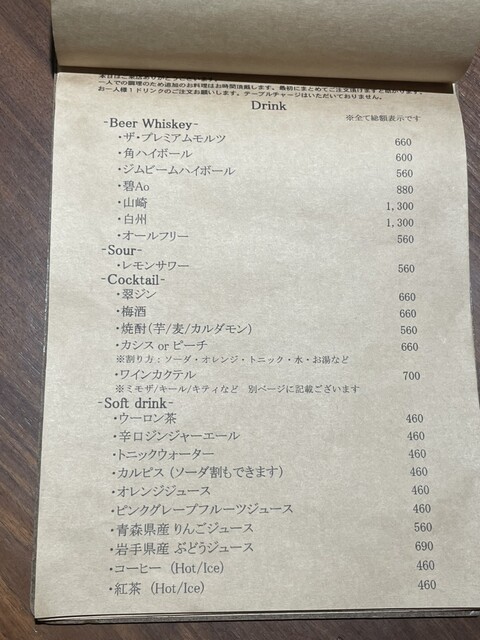 本日はご来店ありがとうございます。
一人での調理のため追加のお料理はお時間頂戴します。最初にまとめてご注文頂けますと助かります。
お一人様1ドリンクのご注文お願いします。テーブルチャージはいただいておりません。
Drink
※全て総額表示です
-Beer Whiskey-
・ザ・プレミアムモルツ 660
・角ハイボール 600
・ジムビームハイボール 560
・碧Ao 880
・山崎 1,300
・白州 1,300
・オールフリー 560
-Sour-
・レモンサワー 560
-Cocktail-
・翠ジン 660
・梅酒 660
・焼酎(芋/麦/カルダモン) 560
・カシス or ピーチ 660
※割り方：ソーダ・オレンジ・トニック・水・お湯など
・ワインカクテル 700
※ミモザ/キール/キティなど 別ページに記載ございます
-Soft drink-
・ウーロン茶 460
・辛口ジンジャーエール 460
・トニックウォーター 460
・カルピス (ソーダ割もできます) 460
・オレンジジュース 460
・ピンクグレープフルーツジュース 460
・青森県産 りんごジュース 560
・岩手県産 ぶどうジュース 690
・コーヒー (Hot/Ice) 460
・紅茶 (Hot/Ice) 460